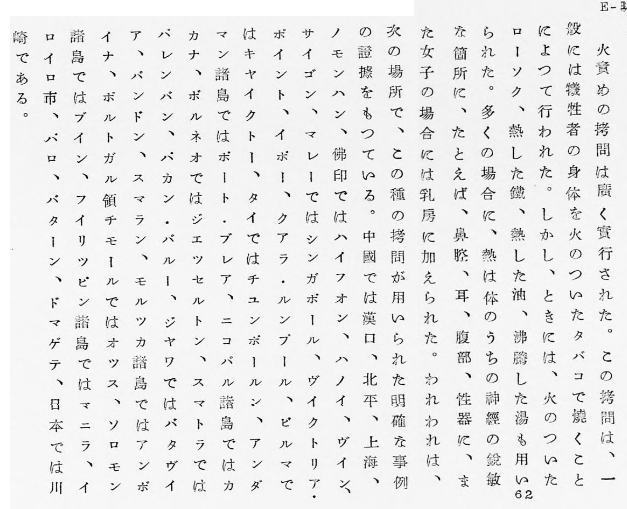 E-3
火責めの拷問は廣く實行された。この拷問は、一
般には犧牲者の身体を火のついたタバコで燒くこと
によつて行われた。しかし、ときには、火のついた
ローソク、熱した鐵、熱した油、沸騰した湯も用い
られた。多くの場合に、熱は体のうちの神經の鋭敏
な箇所に、たとえば、鼻腔、耳、腹部、性器に、ま
た女子の場合には乳房に加えられた。われわれは、
次の場所で、この種の拷問が用いられた明確な事例
の證據をもつている。中國では漢口、北平、上海、
ノモンハン、佛印ではハイフオン、ハノイ、ヴイン、
サイゴン、マレーではシンガポール、ヴイクトリア・
ポイント、イポー、クアラ・ルンプール、ビルマで
はキヤイクトー、タイではチュンポールン、アンダ
マン諸島ではポート・ブレア、ニコバル諸島ではカ
カナ、ボルネオではジエツセルトン、スマトラでは
パレンバン、パカン・バルー、ジヤワではバタヴイ
ア、バンドン、スマラン、モルツカ諸島ではアンボ
イナ、ポルトガル領チモールではオツス、ソロモン
諸島ではブイン、フイリツピン諸島ではマニラ、イ
ロイロ市、パロ、バターン、ドマゲテ、日本では川
崎である。
62